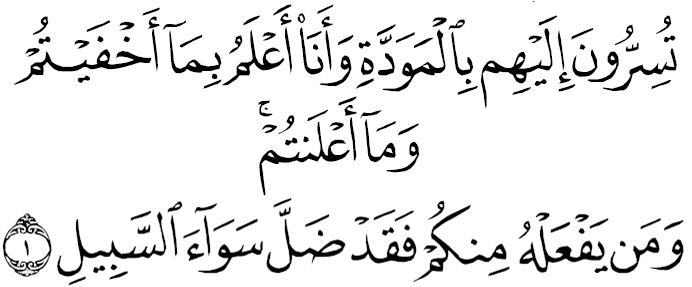 تُسِرُّونَ إِلَيْهِم بِٱلْمَوَدَّةِ وَأَنَا۠ أَعْلَمُ بِمَآ أَخْفَيْتُمْ
وَمَآ أَعْلَنتُمْ ۚ
وَمَن يَفْعَلْهُ مِنكُمْ فَقَدْ ضَلَّ سَوَآءَ ٱلسَّبِيلِ ١